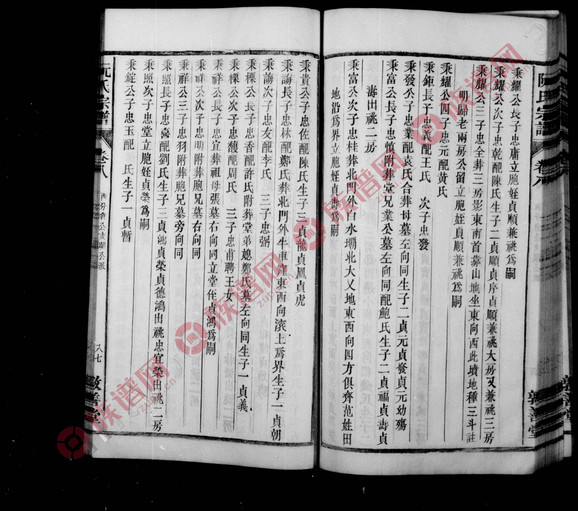 秉耀公長子忠庸立胞姪貞順兼祧爲嗣
秉耀公次子忠乾配陳氏生子二貞順貞序貞順兼祧大房又兼祧三房
秉耀公三子忠全葬三房影東南首葬山地坐東向西此墳地種三斗註
明歸老兩房公留立胞姪貞順兼祧爲嗣
秉耀公四子忠元配黃氏
秉鉅長子忠袁配王氏 次子忠發
秉發公子忠業配袁氏合葬母墓左向同生子二貞元貞發貞元幼殤
秉富公長子忠慎附葬堂兄業公墓左向同配鮑氏生子二貞福貞壽貞
秉富公次子忠桂葬北門外白水壩北大乂地東西向四方俱齊范姓田
地沿爲界立胞姪貞壽爲嗣
海出祧二房
秉貴公子忠佐配陳氏生子三貞龍貞鳳貞虎
秉謝長子忠林配鄭氏葬北門外牛車 東西向滾上爲界生子一貞朝
秉謝次子忠友配李氏 三子忠弼
秉樑公長子忠香配許氏附葬堂弟媳鄭氏墓左向同生子一貞義
秉樑公次子忠馥配周氏 三子忠甫聘王女
秉祥公長子忠宜葬祖母張墓右向同立堂侄貞鴻爲嗣
秉祥公次子忠明附葬胞兄墓右向同
秉祥公三子忠羽附葬胞兄墓旁向同
秉照長子忠崗配劉氏生子三貞鴻貞榮貞德鴻出祧忠宜榮出祧二房
秉照次子忠堂立胞姪貞榮爲嗣
秉錠公子忠玉配 氏生子一貞暫
阮氏宗譜
卷八
八七
敦善堂
族谱网